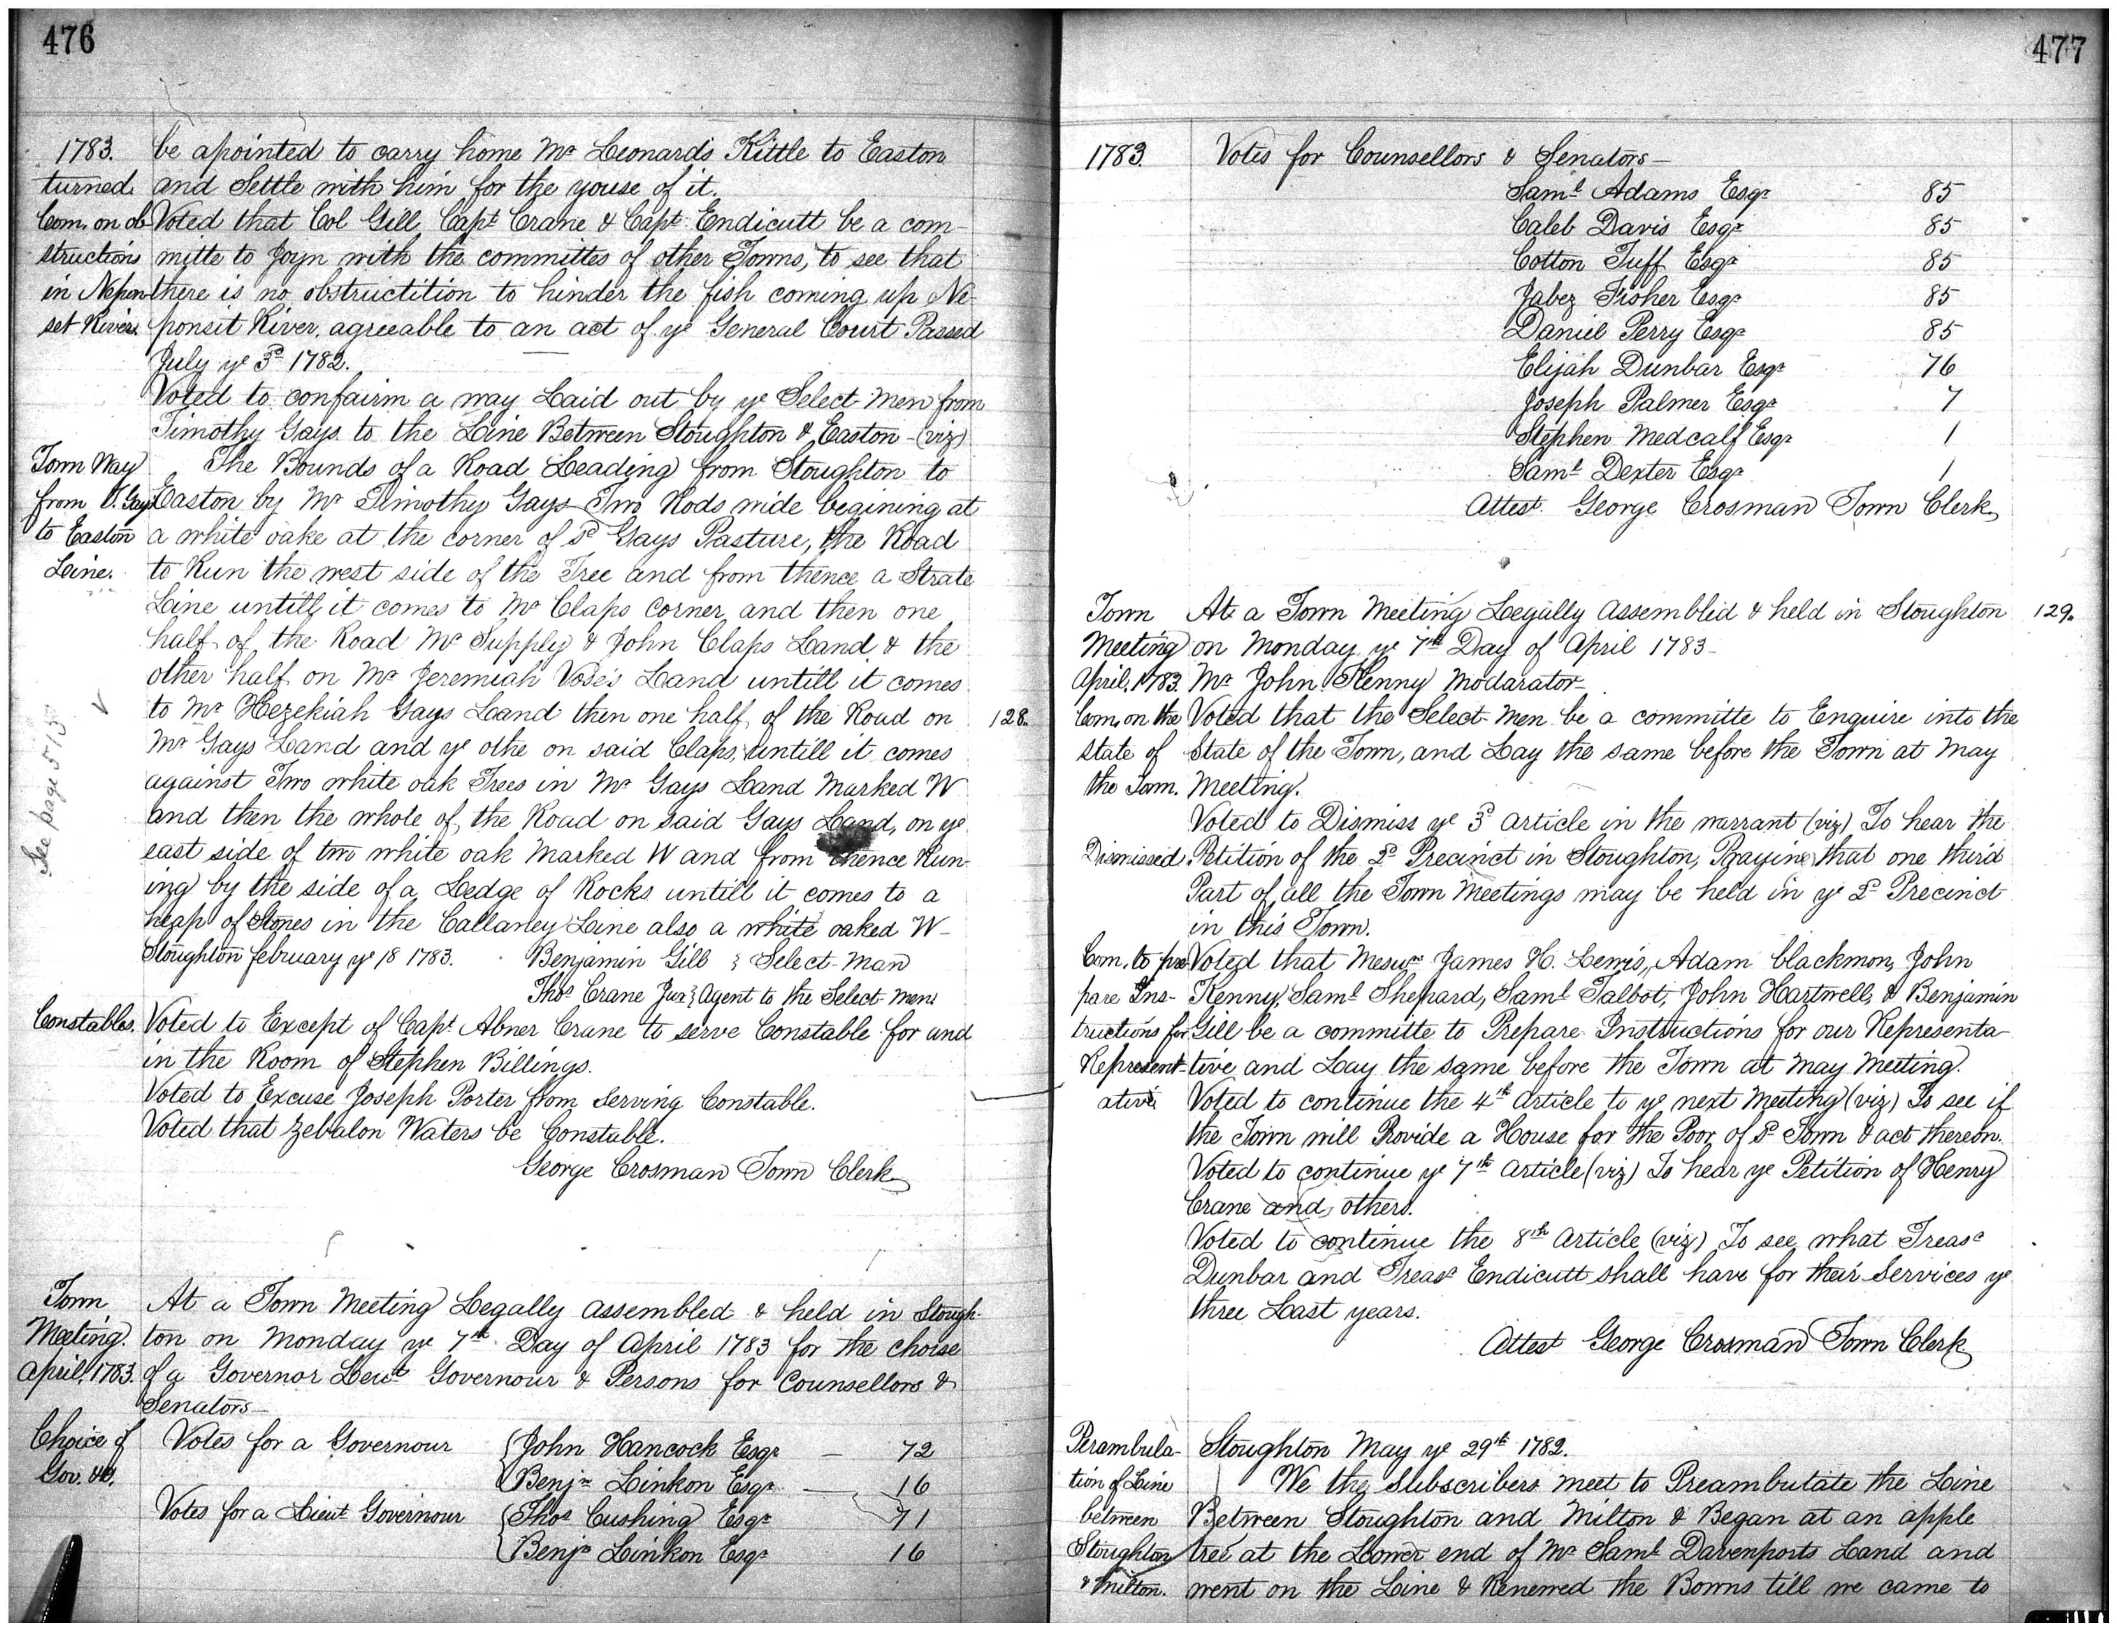 476
1783. be apointed to carry home Mr Leonards Kittle to Easton
turned. and Settle with him for the youse of it.
Com. on ob- Voted that Col Gill, Capt Crane & Capt Endicutt be a com-
structions mitte to Joyn with the committes of other Towns, to see that
in Nepon- there is no obstructition to hinder the fish coming up Ne-
set River. ponsit River, agreeable to an act of ye General Court Passed
July ye 3d 1782.
Voted to confairm a way Laid out by ye Select Men from
Timothy Gays to the Line Between Stoughton & Easton - (viz)
Town Way The Bounds of a Road Leading from Stoughton to
from T. Gays Easton by Mr Timothy Gays Two Rods wide begining at
to Easton a white oake at the corner of sd Gays Pasture, the Road
Line. to Run the west side of the Tree and from thence a Strate
Line untill it comes to Mr Claps Corner and then one
half of the Road Mr Supply & John Claps Land & the
other half on Mr Jeremiah Vose's Land untill it comes
to Mr Hezekiah Gays Land then one half of the Road on 128.
Mr Gays Land and ye othe on said Claps, untill it comes
against Two white oak Trees in Mr Gays Land Marked W
and then the whole of the Road on said Gays Land, on ye
east side of two white oak Marked W and from thence Run-
ing by the side of a Ledge of Rocks untill it comes to a
heap of Stones in the Callaney Line also a white oaked W -
See page 515
Stoughton february ye 18 1783. Benjamin Gill } Select Man
Thos Crane Jur } Agent to the Select Men
Constables. Voted to Except of Capt Abner Crane to serve Constable for and
in the Room of Stephen Billings.
Voted to Excuse Joseph Porter from Serving Constable.
Voted that Zebalon Waters be Constable.
George Crosman Town Clerk
Town At a Town Meeting Legally assembled & held in Stough-
Meeting. ton on Monday ye 7th Day of April 1783 for the Choise
April, 1783. of a Governor Leiut Governour & Persons for Counsellors &
Senators -
Choice of Votes for a Governour { John Hancock Esqr — 72
Gov. &c. { Benjn Linkon Esqr — 16
Votes for a Lieut Governour { Thos Cushing Esqr 71
{ Benjn Linkon Esqr 16
477
1783. Votes for Counsellors & Senators -
Saml Adams Esqr 85
Caleb Davis Esqr 85
Cotton Tuff Esqr 85
Jabez Fisher Esqr 85
Daniel Perry Esqr 85
Elijah Dunbar Esqr 76
Joseph Palmer Esqr 7
Stephen Medcalf Esqr 1
Saml Dexter Esqr 1
Attest. George Crosman Town Clerk
Town At a Town Meeting Legally assembled & held in Stoughton 129.
Meeting on Monday ye 7th Day of April 1783 -
April, 1783. Mr John Kenny Modarator -
Com. on the Voted that the Select Men be a committe to Enquire into the
State of State of the Town, and Lay the same before the Town at May
the Town. Meeting.
Voted to Dismiss ye 3d article in the warrant (viz) To hear the
Dismissed. Petition of the 2d Precinct in Stoughton, Praying that one third
Part of all the Town Meetings may be held in ye 2d Precinct
in this Town.
Com. to pre- Voted that Mesurs James H. Lewis, Adam blackmon, John
pare Ins- Kenny, Saml Shepard, Saml Talbot, John Hartwell, & Benjamin
tructions for Gill be a committe to Prepare Instructions for our Representa-
Represent- tive and Lay the same before the Town at May Meeting.
ative. Voted to continue the 4th article to ye next Meeting (viz) To see if
the Town will Provide a House for the Poor of sd Town & act thereon.
Voted to continue ye 7th article (viz) To hear ye Petition of Henry
Crane and others.
Voted to continue the 8th article (viz) To see what Treasr
Dunbar and Treasr Endicutt shall have for their Services ye
three Last years.
Attest George Crosman Town Clerk
Perambula- Stoughton May ye 29th 1782.
tion of Line We the Subscribers meet to Preambulate the Line
between Between Stoughton and Milton & Began at an apple
Stoughton tree at the Lower end of Mr Saml Davenports Land and
& Milton. went on the Line & Renewed the Bowns till we came to